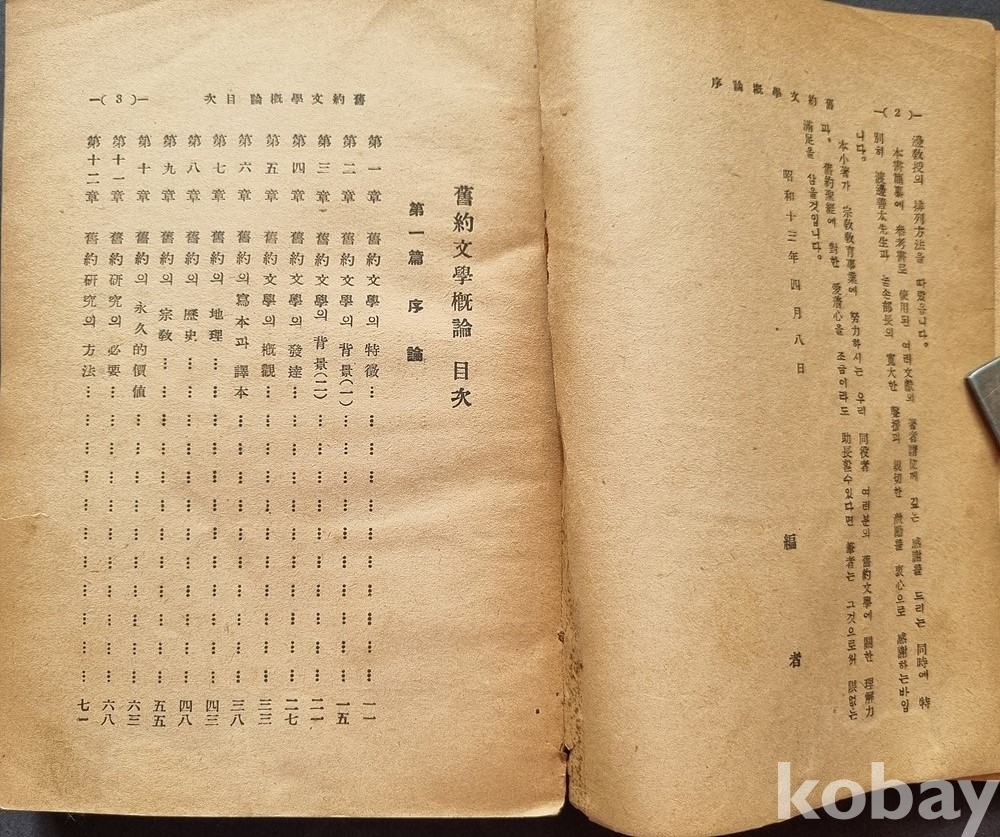 舊約文學槪論序
—( 2 )—
邊敎授의 排列方法을 따랐읍니다.
本書編纂에 參考書로 使用된 여러文獻의 著者諸位께 깊은 感謝를 드리는 同時에 特
別히 渡邊善太先生과 놀손部長의 寬大한 聲援과 親切한 鼓勵를 衷心으로 感謝하는바임
니다.
本小著가 宗敎敎育事業에 努力하시는 우리 同役者 여러분의 舊約文學에 關한 理解力
과, 舊約聖經에 對한 愛着心을 조금이라도 助長할수있다면 著者는 그것으로써 限없는
滿足을 삼을것입니다.
昭和十三年四月八日
編者
舊約文學槪論目次
—( 3 )—
舊約文學槪論 目次
第一篇 序論
第一章 舊約文學의 特徵……………………………一一
第二章 舊約文學의 背景(一)……………………………一五
第三章 舊約文學의 背景(二)……………………………二一
第四章 舊約文學의 發達……………………………二七
第五章 舊約文學의 槪觀……………………………三三
第六章 舊約의寫本과譯本……………………………三八
第七章 舊約의 地理……………………………四三
第八章 舊約의 歷史……………………………四八
第九章 舊約의 宗敎……………………………五五
第十章 舊約의 永久的價値……………………………六三
第十一章 舊約研究의 必要……………………………六八
第十二章 舊約研究의 方法……………………………七一
kobay